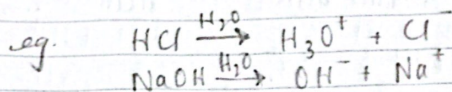 eg. HCl —H₂O→ H₃O⁺ + Cl⁻
NaOH —H₂O→ OH⁻ + Na⁺